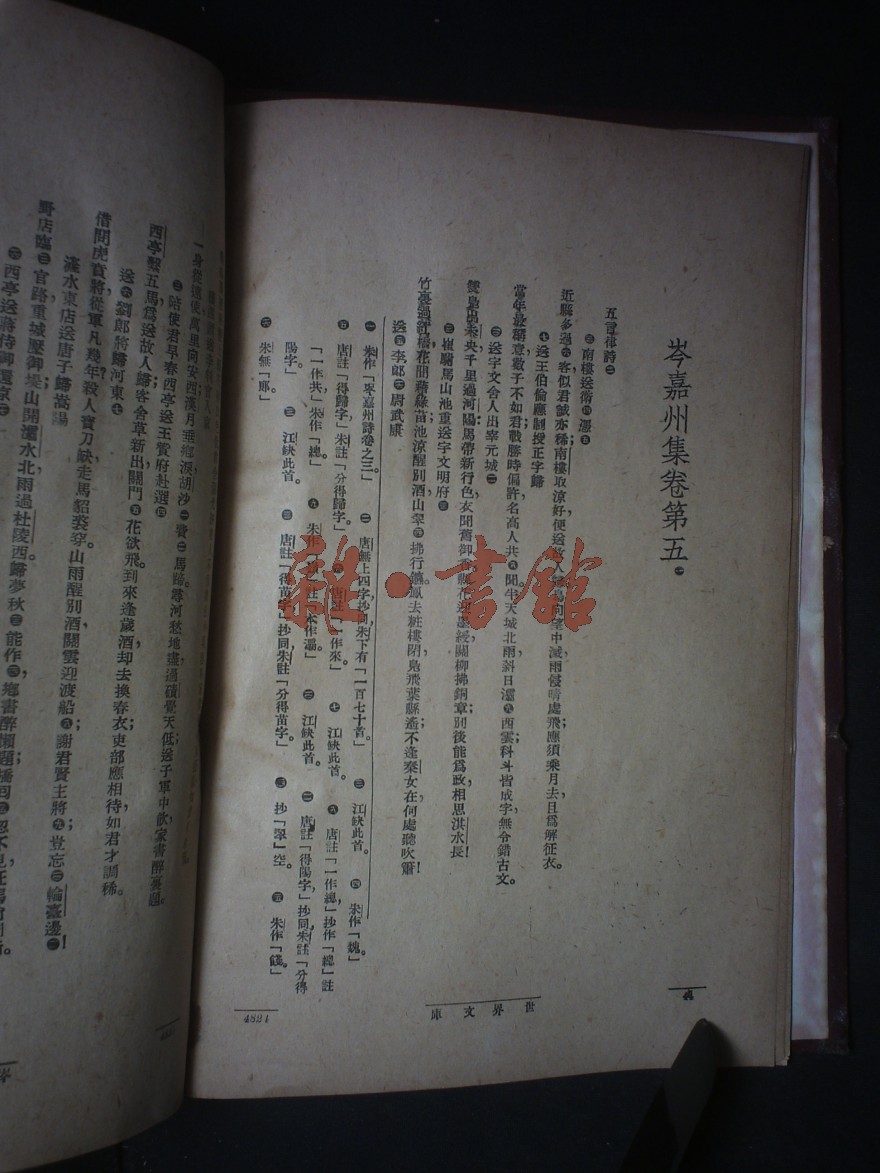 岑嘉州集卷第五㊀
五言律詩㊁
㊂南樓送衞㊃憑㊄
近縣多過㊅客似君誠亦稀南樓取涼好便送故人歸鳥向望中滅雨侵晴處飛應須乘月去且爲解征衣。
㊆送王伯倫應制授正字歸
當年最稱意數子不如君戰勝時偏許名高人共㊇聞半天城北雨斜日灞㊈西雲科斗皆成字無令錯古文。
送宇文舍人出宰元城
雙鳧出未央千里過河陽馬帶新行色衣聞舊御香縣花迎墨綬關柳拂銅章別後能爲政相思淇水長！
崔駙馬山池重送宇文明府
竹裏過紅橋花間藉綠苗池涼醒別酒山翠拂行鑣。鳳去粧樓閉鳧飛葉縣遙不逢秦女在何處聽吹簫
送李郎尉武康
㊀ 朱作「岑嘉州詩卷之三」 ㊁ 唐無上四字抄同朱下有「一百七十首」 ㊂ 江缺此首。 ㊃ 朱作「魏」
㊄ 唐註「得歸字」朱註「分得歸字」。 ㊅ 唐註「一作來」 ㊆ 江缺此首。 ㊇ 唐註「一作總」抄作「總」註
「一作共」朱作「總」 ㊈ 朱作
江缺此首。 唐註「得陽字」抄同朱註「分得
陽字」 江缺此首。 唐註「得苗字」抄同朱註「分得苗字」 抄「翠」空。 朱作「餞」
朱無「郎」
世界文庫
4824
一身從遠使萬里向安西漢月垂鄉淚胡沙費馬蹄尋河愁地盡過磧覺天低送子軍中飲家書醉裏題。
陪使君早春西亭送王贊府赴選
西亭繫五馬爲送故人歸客舍草新出關門花欲飛到來逢歲酒却去換春衣吏部應相待如君才調稀。
送劉郎將歸河東
借問虎賁將從軍凡幾年殺人寶刀缺走馬貂裘穿山雨醒別酒關雲迎渡船謝君賢主將豈忘輪臺邊！
滻水東店送唐子歸嵩陽
野店臨官路重城壓御堤山開灞水北雨過杜陵西歸夢秋能作鄉書醉懶題橋回忽不見征馬
西亭送蔣侍御還京